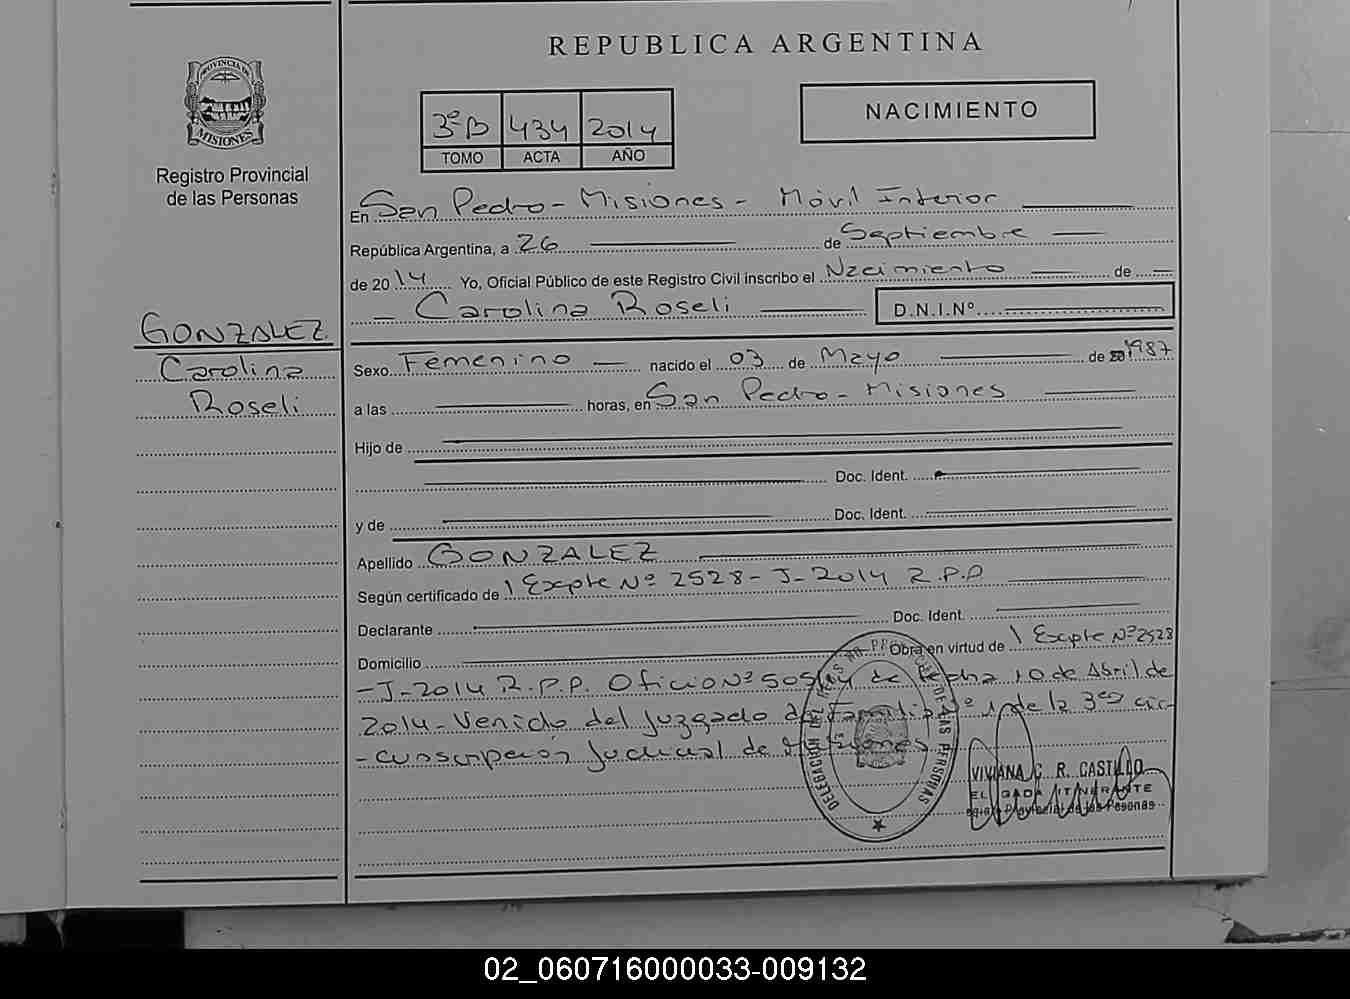 REPUBLICA ARGENTINA
PROVINCIA DE MISIONES
Registro Provincial
de las Personas
3º B 434 2014
TOMO ACTA AÑO
NACIMIENTO
En San Pedro - Misiones - Móvil Interior
República Argentina, a 26 de Septiembre
de 2014 Yo, Oficial Público de este Registro Civil inscribo el Nacimiento de
Carolina Roseli D.N.I.Nº
GONZALEZ
Carolina
Roseli
Sexo Femenino nacido el 03 de Mayo de 1987
a las horas, en San Pedro - Misiones
Hijo de
Doc. Ident.
y de Doc. Ident.
Apellido GONZALEZ
Según certificado de Expte Nº 2528 - J - 2014 R.P.P
Declarante Doc. Ident.
Domicilio Obra en virtud de Expte Nº 2528
- J - 2014 R.P.P. Oficio Nº de fecha 10 de Abril de
2014 - Venido del Juzgado de Familia Nº 1 de la 3era cir-
- cunscripción Judicial de Misiones
DELEGACION DEL REGISTRO PROVINCIAL DE LAS PERSONAS
VIVIANA C. R. CASTILLO
DELEGADA ITINERANTE
Registro Provincial de las Personas
02_060716000033-009132